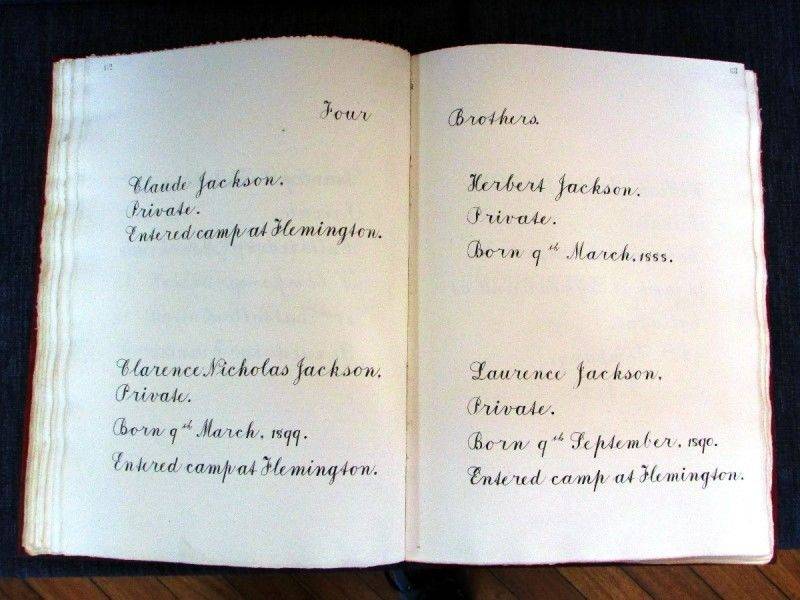 Four Brothers.
Claude Jackson.
Private.
Entered camp at Flemington.
Clarence Nicholas Jackson.
Private.
Born 9th March, 1899.
Entered camp at Flemington.
Herbert Jackson.
Private.
Born 9th March, 1888.
Laurence Jackson.
Private.
Born 9th September, 1890.
Entered camp at Flemington.